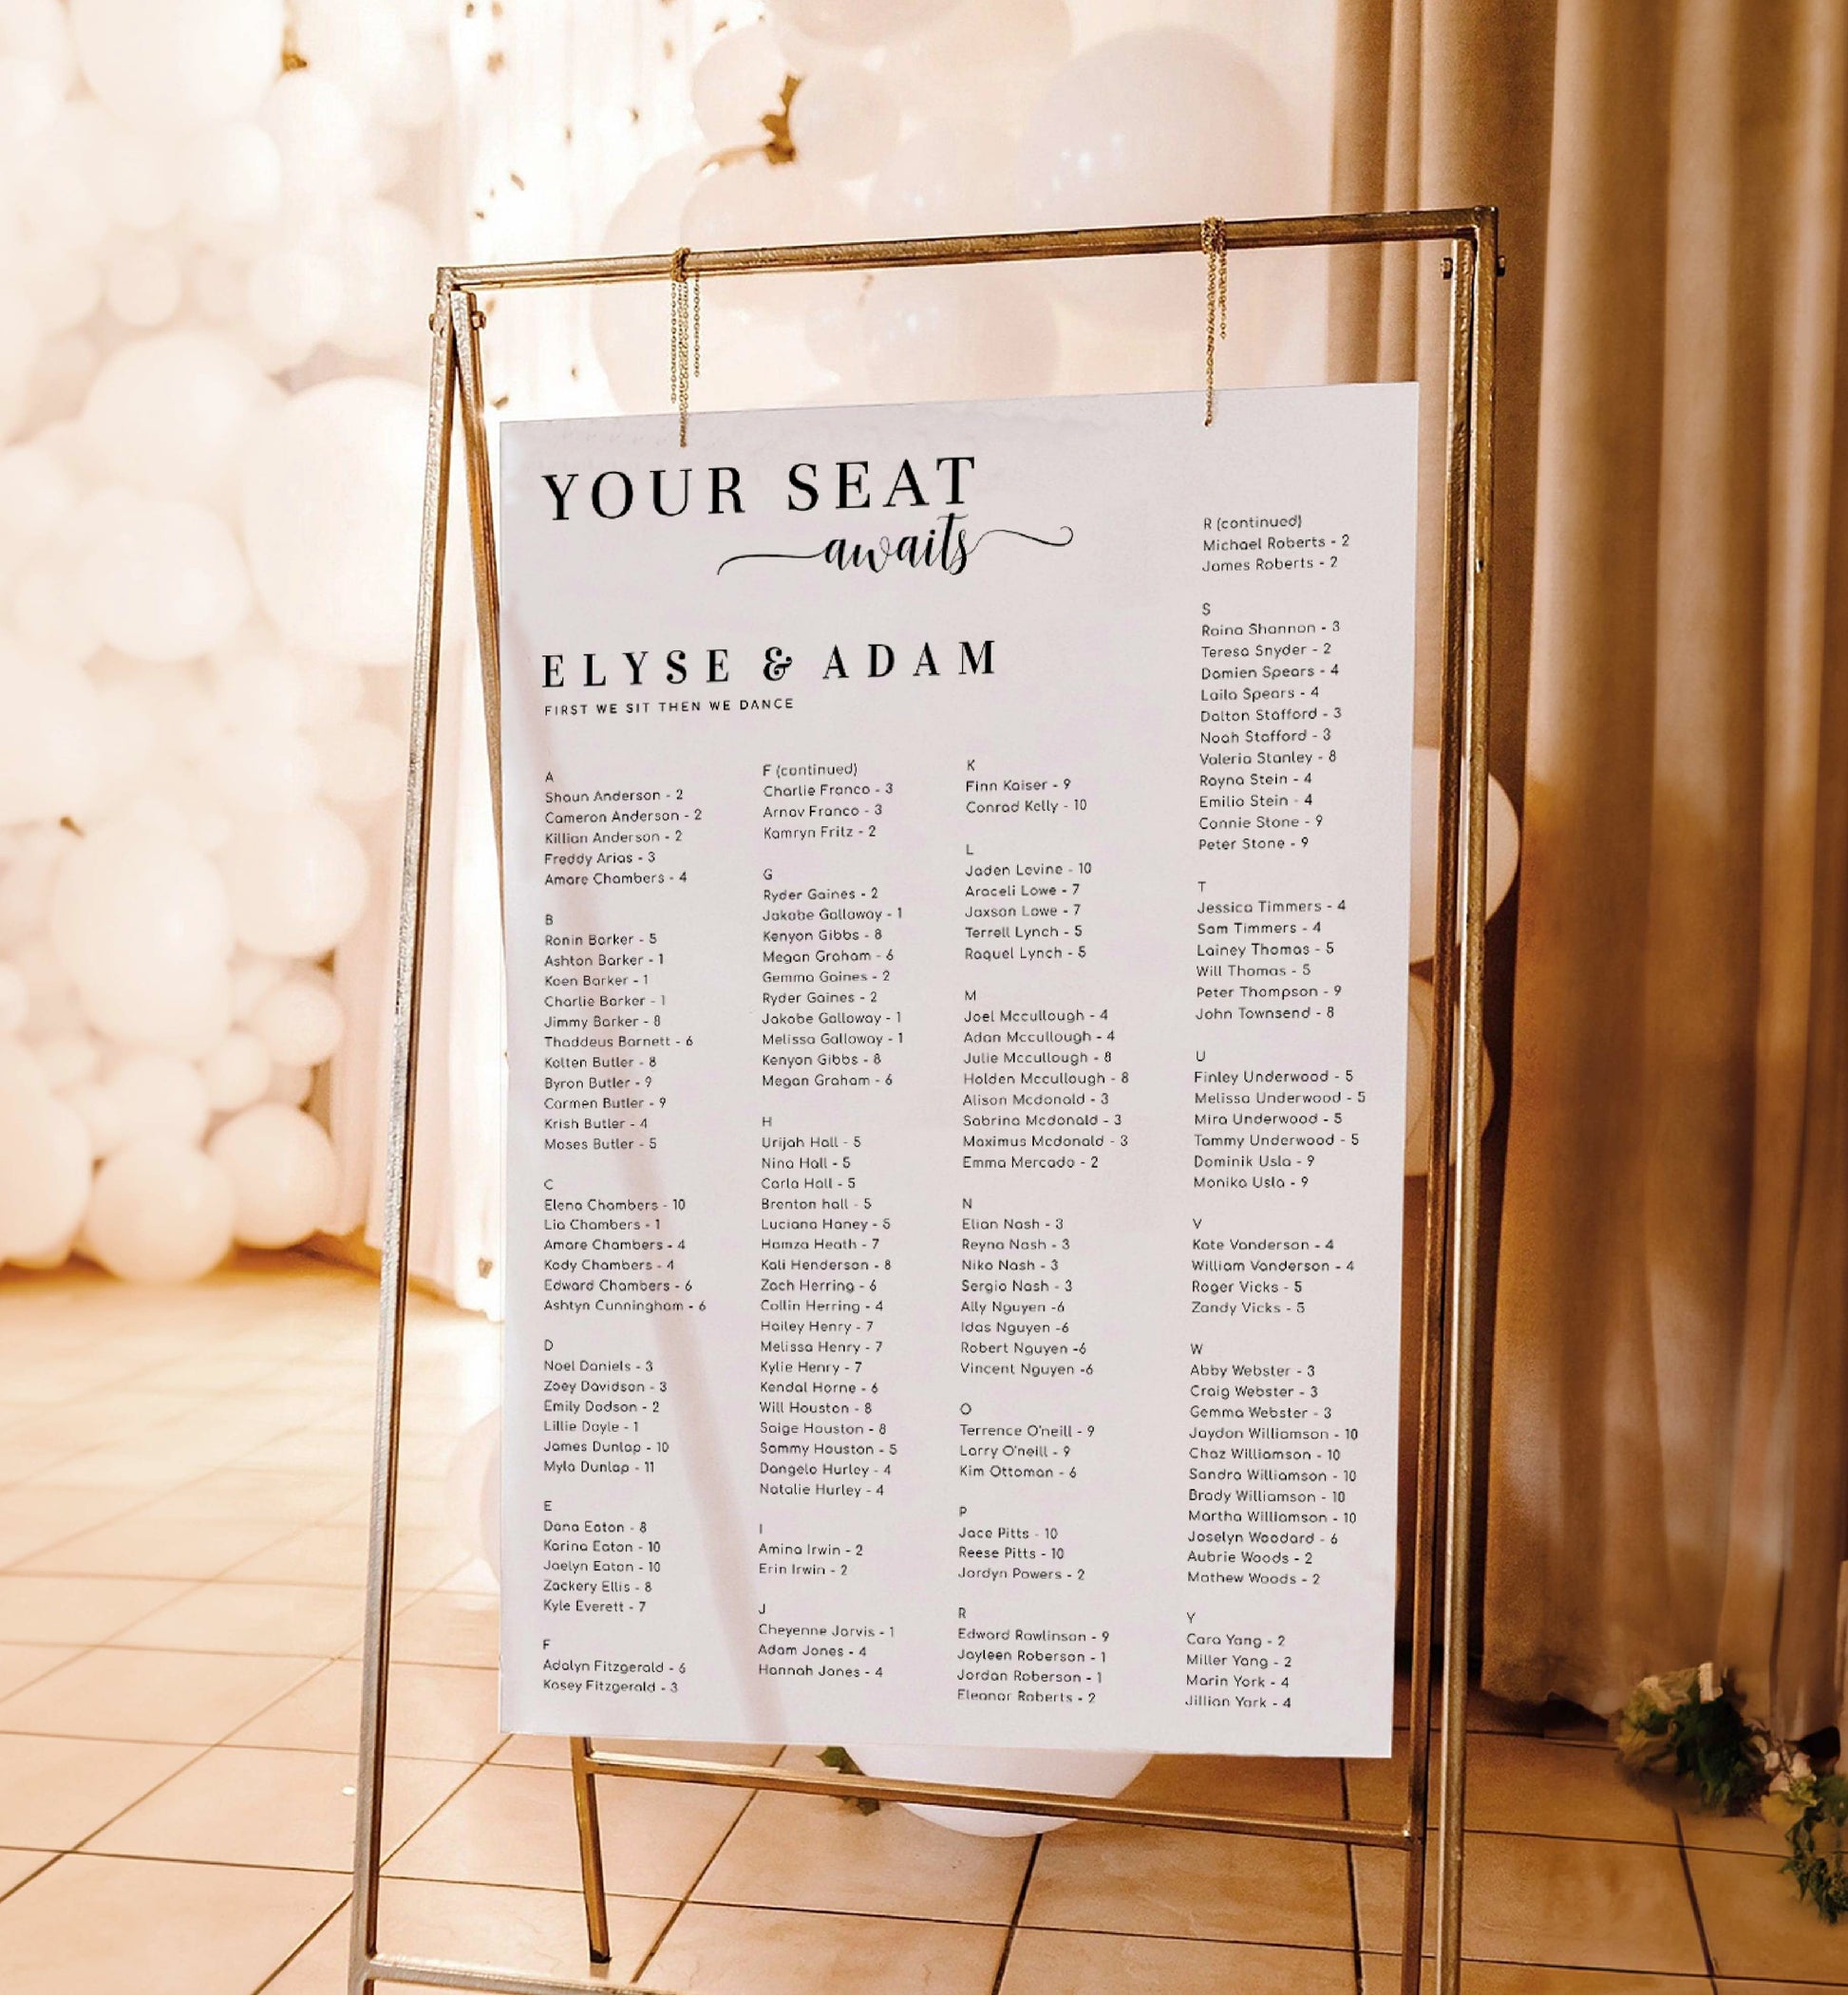 YOUR SEAT
awaits
ELYSE & ADAM
FIRST WE SIT THEN WE DANCE
A
Shaun Anderson - 2
Cameron Anderson - 2
Killian Anderson - 2
Freddy Arias - 3
Amare Chambers - 4
B
Ronin Barker - 5
Ashton Barker - 1
Koen Barker - 1
Charlie Barker - 1
Jimmy Barker - 8
Thaddeus Barnett - 6
Kolten Butler - 8
Byron Butler - 9
Carmen Butler - 9
Krish Butler - 4
Moses Butler - 5
C
Elena Chambers - 10
Lia Chambers - 1
Amare Chambers - 4
Kody Chambers - 4
Edward Chambers - 6
Ashtyn Cunningham - 6
D
Noel Daniels - 3
Zoey Davidson - 3
Emily Dodson - 2
Lillie Doyle - 1
James Dunlap - 10
Myla Dunlap - 11
E
Dana Eaton - 8
Karina Eaton - 10
Jaelyn Eaton - 10
Zackery Ellis - 8
Kyle Everett - 7
F
Adalyn Fitzgerald - 6
Kasey Fitzgerald - 3
F (continued)
Charlie Franco - 3
Arnav Franco - 3
Kamryn Fritz - 2
G
Ryder Gaines - 2
Jakobe Galloway - 1
Kenyon Gibbs - 8
Megan Graham - 6
Gemma Gaines - 2
Ryder Gaines - 2
Jakobe Galloway - 1
Melissa Galloway - 1
Kenyon Gibbs - 8
Megan Graham - 6
H
Urijah Hall - 5
Nina Hall - 5
Carla Hall - 5
Brenton hall - 5
Luciana Haney - 5
Hamza Heath - 7
Kali Henderson - 8
Zach Herring - 6
Collin Herring - 4
Hailey Henry - 7
Melissa Henry - 7
Kylie Henry - 7
Kendal Horne - 6
Will Houston - 8
Saige Houston - 8
Sammy Houston - 5
Dangelo Hurley - 4
Natalie Hurley - 4
I
Amina Irwin - 2
Erin Irwin - 2
J
Cheyenne Jarvis - 1
Adam Jones - 4
Hannah Jones - 4
K
Finn Kaiser - 9
Conrad Kelly - 10
L
Jaden Levine - 10
Araceli Lowe - 7
Jaxson Lowe - 7
Terrell Lynch - 5
Raquel Lynch - 5
M
Joel Mccullough - 4
Adan Mccullough - 4
Julie Mccullough - 8
Holden Mccullough - 8
Alison Mcdonald - 3
Sabrina Mcdonald - 3
Maximus Mcdonald - 3
Emma Mercado - 2
N
Elian Nash - 3
Reyna Nash - 3
Niko Nash - 3
Sergio Nash - 3
Ally Nguyen -6
Idas Nguyen -6
Robert Nguyen -6
Vincent Nguyen -6
O
Terrence O'neill - 9
Larry O'neill - 9
Kim Ottoman - 6
P
Jace Pitts - 10
Reese Pitts - 10
Jordyn Powers - 2
R
Edward Rawlinson - 9
Jayleen Roberson - 1
Jordan Roberson - 1
Eleanor Roberts - 2
R (continued)
Michael Roberts - 2
James Roberts - 2
S
Raina Shannon - 3
Teresa Snyder - 2
Damien Spears - 4
Laila Spears - 4
Dalton Stafford - 3
Noah Stafford - 3
Valeria Stanley - 8
Rayna Stein - 4
Emilio Stein - 4
Connie Stone - 9
Peter Stone - 9
T
Jessica Timmers - 4
Sam Timmers - 4
Lainey Thomas - 5
Will Thomas - 5
Peter Thompson - 9
John Townsend - 8
U
Finley Underwood - 5
Melissa Underwood - 5
Mira Underwood - 5
Tammy Underwood - 5
Dominik Usla - 9
Monika Usla - 9
V
Kate Vanderson - 4
William Vanderson - 4
Roger Vicks - 5
Zandy Vicks - 5
W
Abby Webster - 3
Craig Webster - 3
Gemma Webster - 3
Jaydon Williamson - 10
Chaz Williamson - 10
Sandra Williamson - 10
Brady Williamson - 10
Martha Williamson - 10
Joselyn Woodard - 6
Aubrie Woods - 2
Mathew Woods - 2
Y
Cara Yang - 2
Miller Yang - 2
Marin York - 4
Jillian York - 4